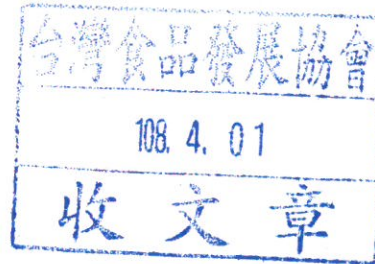 台灣食品發展協會
108. 4. 01
收文章